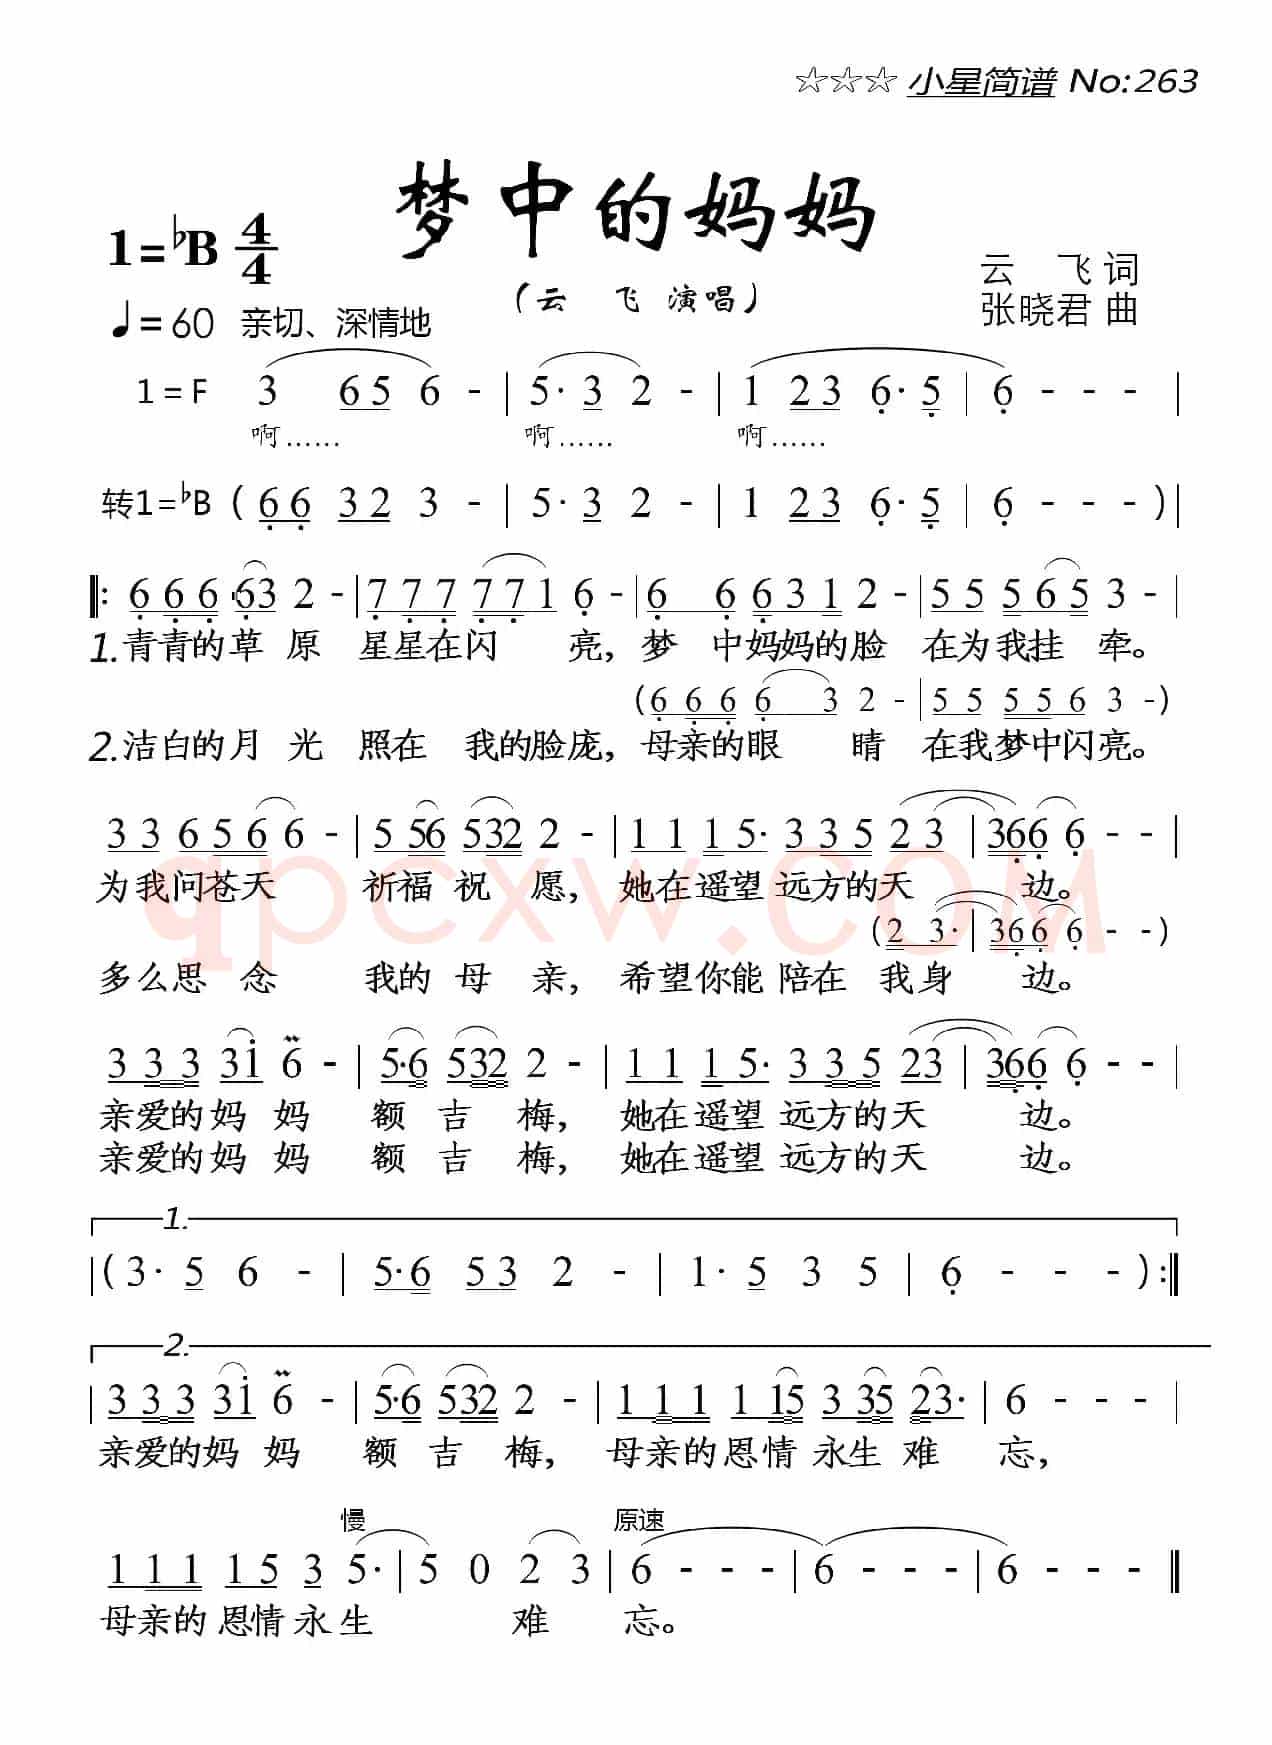 ☆☆☆ 小星简谱 No:263
梦中的妈妈
1=♭B 4/4
(云 飞 演唱)
云 飞 词
张晓君 曲
♩=60 亲切、深情地
1=F 3 6 5 6 - | 5· 3 2 - | 1 2 3 6· 5 | 6 - - - |
啊…… 啊…… 啊……
转1=♭B ( 6 6 3 2 3 - | 5· 3 2 - | 1 2 3 6· 5 | 6 - - - ) |
‖: 6 6 6 6 3 2 - | 7 7 7 7 7 1 6 - | 6 6 6 3 1 2 - | 5 5 5 6 5 3 - |
1. 青青的草 原 星星在闪 亮, 梦 中妈妈的脸 在为我挂 牵。
(6 6 6 6 3 2 - | 5 5 5 5 6 3 -)
2. 洁白的月 光 照在 我的脸庞, 母亲的眼 睛 在我梦中闪亮。
3 3 6 5 6 6 - | 5 5 6 5 3 2 2 - | 1 1 1 5· 3 3 5 2 3 | 3 6 6 6 - - |
为我问苍天 祈福 祝 愿, 她在遥望 远方的天 边。
(2 3· | 3 6 6 6 - -)
多么思 念 我的 母 亲, 希望你能 陪在 我身 边。
3 3 3 3 i 6 - | 5· 6 5 3 2 2 - | 1 1 1 5· 3 3 5 2 3 | 3 6 6 6 - - |
亲爱的妈 妈 额 吉 梅, 她在遥望 远方的天 边。
亲爱的妈 妈 额 吉 梅, 她在遥望 远方的天 边。
1.
| ( 3· 5 6 - | 5· 6 5 3 2 - | 1· 5 3 5 | 6 - - - ) :‖
2.
| 3 3 3 3 i 6 - | 5· 6 5 3 2 2 - | 1 1 1 1 1 5 3 3 5 2 3· | 6 - - - |
亲爱的妈 妈 额 吉 梅, 母亲的恩情 永生 难 忘,
慢 原速
1 1 1 1 5 3 5· | 5 0 2 3 | 6 - - - | 6 - - - | 6 - - - ‖
母亲的 恩情 永 生 难 忘。
qpcxw.COM